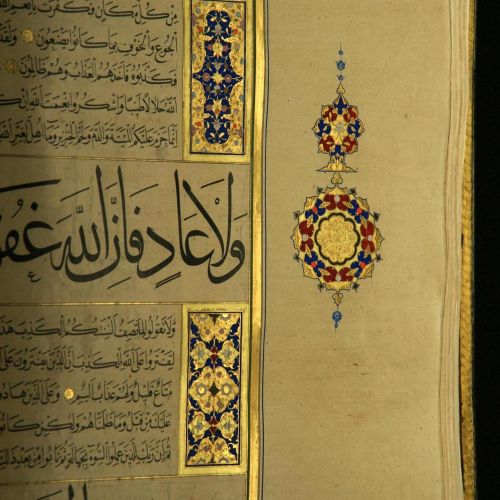 مِن كُلِّ مَكَانٍ فَكَفَرَتْ بِأَنْعُمِ اللَّهِ
الْجُوعِ وَالْخَوْفِ بِمَا كَانُوا يَصْنَعُونَ وَلَقَدْ
فَكَذَّبُوهُ فَأَخَذَهُمُ الْعَذَابُ وَهُمْ ظَالِمُونَ
اللَّهُ حَلَالًا طَيِّبًا وَاشْكُرُوا نِعْمَتَ اللَّهِ إِن
إِنَّمَا حَرَّمَ عَلَيْكُمُ الْمَيْتَةَ وَالدَّمَ وَلَحْمَ الْخِنزِيرِ وَمَا أُهِلَّ لِغَيْرِ اللَّهِ
وَلَا عَادٍ فَإِنَّ اللَّهَ غَفُو
وَلَا تَقُولُوا لِمَا تَصِفُ أَلْسِنَتُكُمُ الْكَذِبَ هَذَا
لِتَفْتَرُوا عَلَى اللَّهِ الْكَذِبَ إِنَّ الَّذِينَ يَفْتَرُونَ عَلَى
مَتَاعٌ قَلِيلٌ وَلَهُمْ عَذَابٌ أَلِيمٌ وَعَلَى الَّذِينَ هَادُوا
عَلَيْكَ مِن قَبْلُ وَمَا ظَلَمْنَاهُمْ وَلَكِن كَانُوا
ثُمَّ إِنَّ رَبَّكَ لِلَّذِينَ عَمِلُوا السُّوءَ بِجَهَالَةٍ ثُمَّ تَابُوا مِن بَعْدِ ذَلِكَ